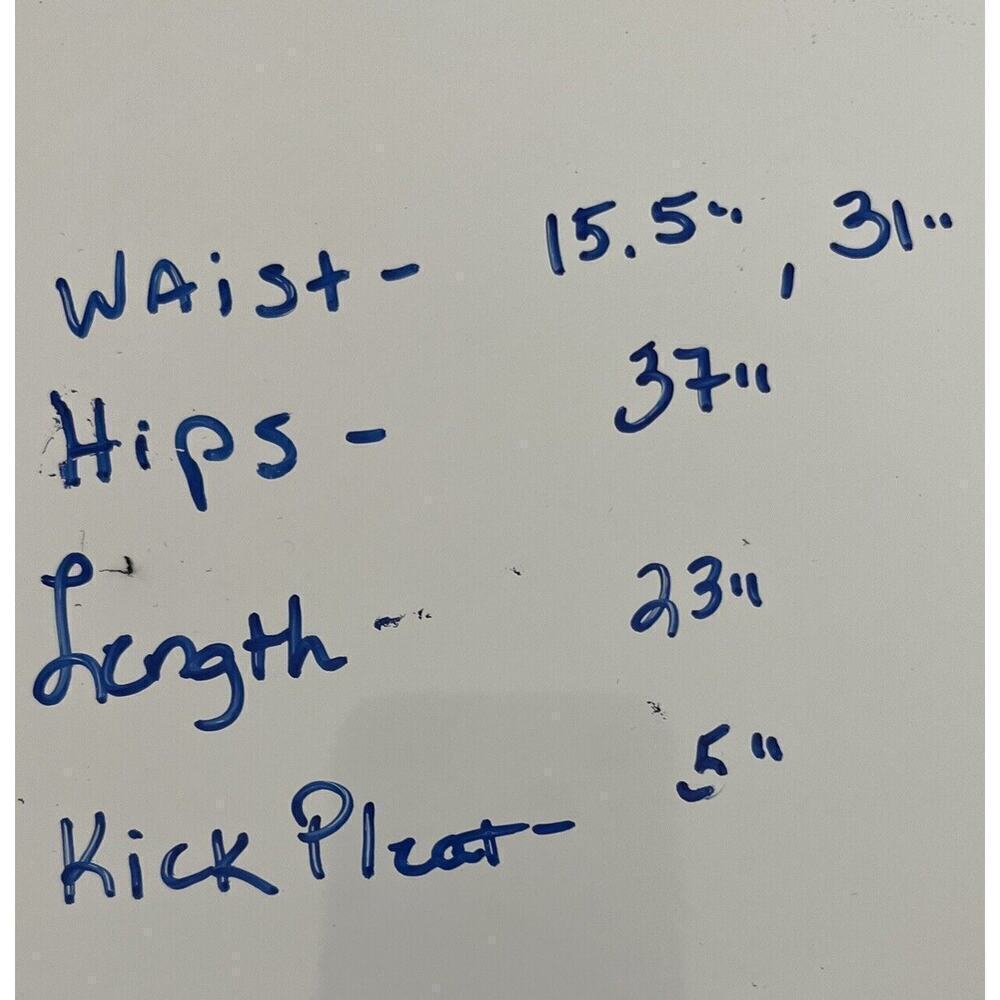 WAist - 15.5", 31"
Hips - 37"
Length - 23"
Kick Pleat - 5"